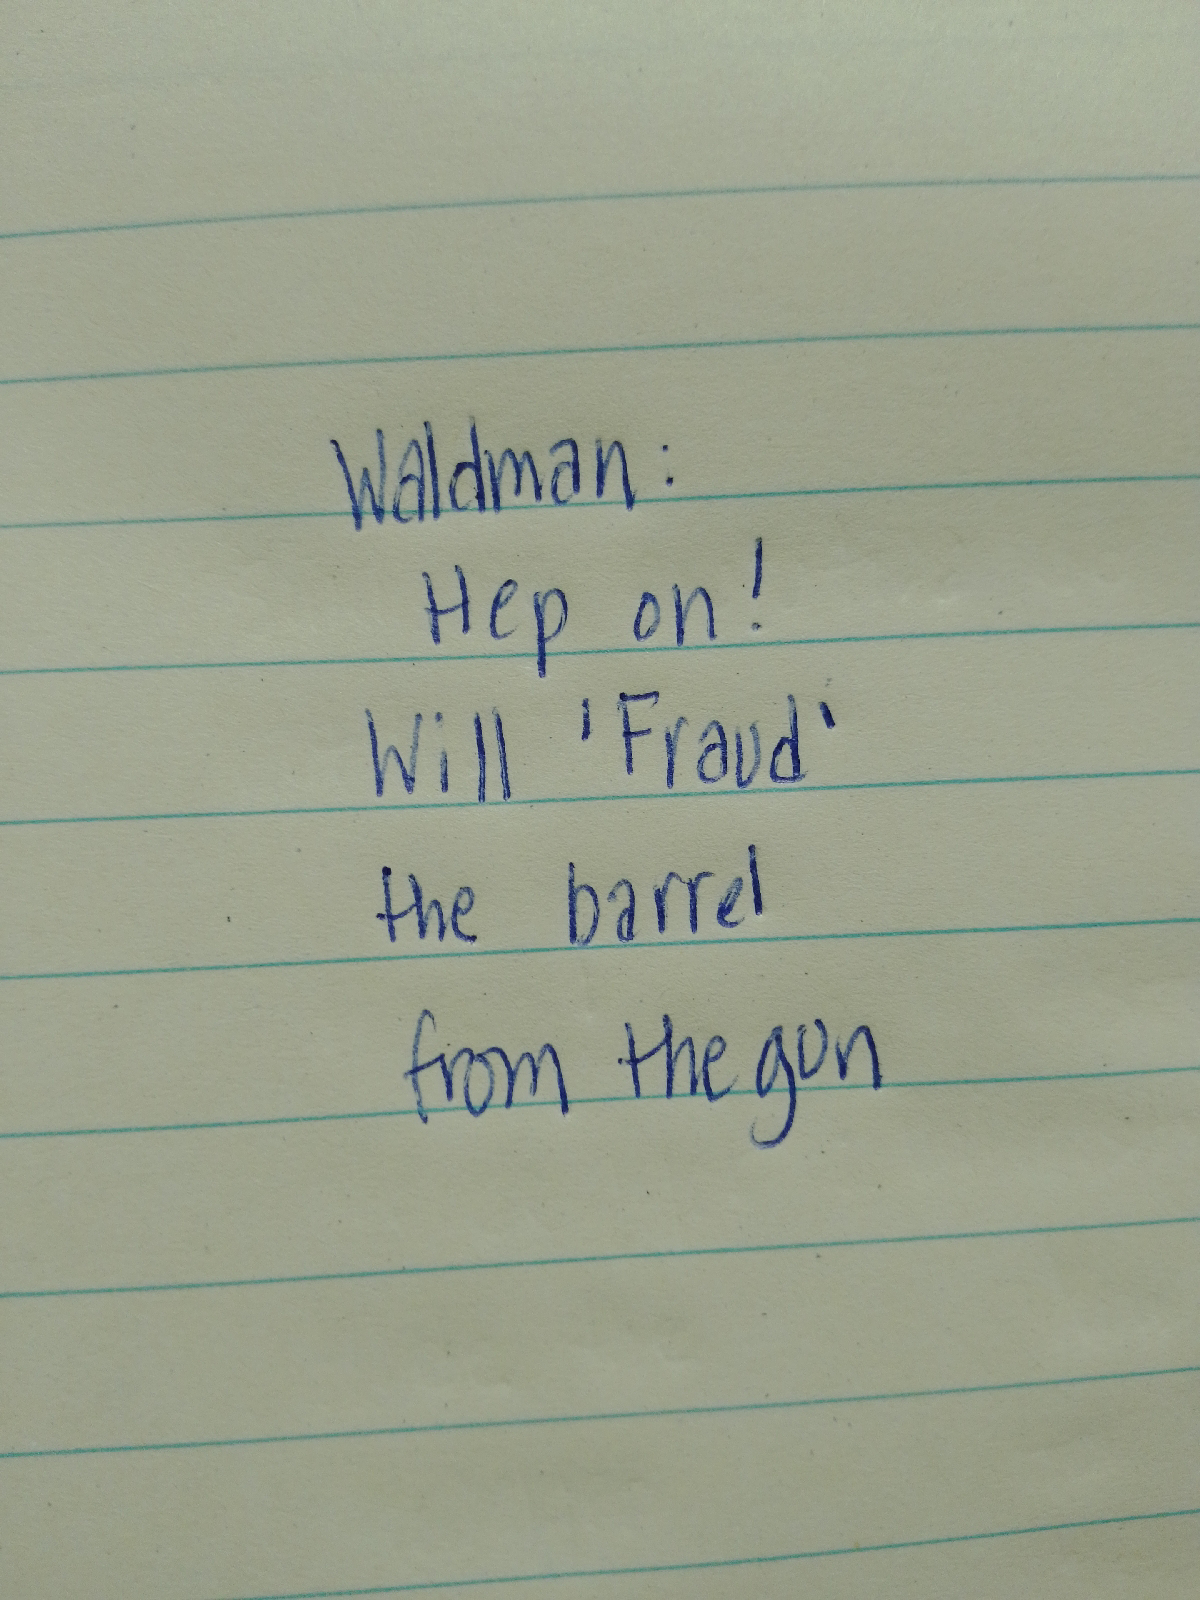 Waldman:
Hep on!
Will 'Fraud'
the barrel
from the gun